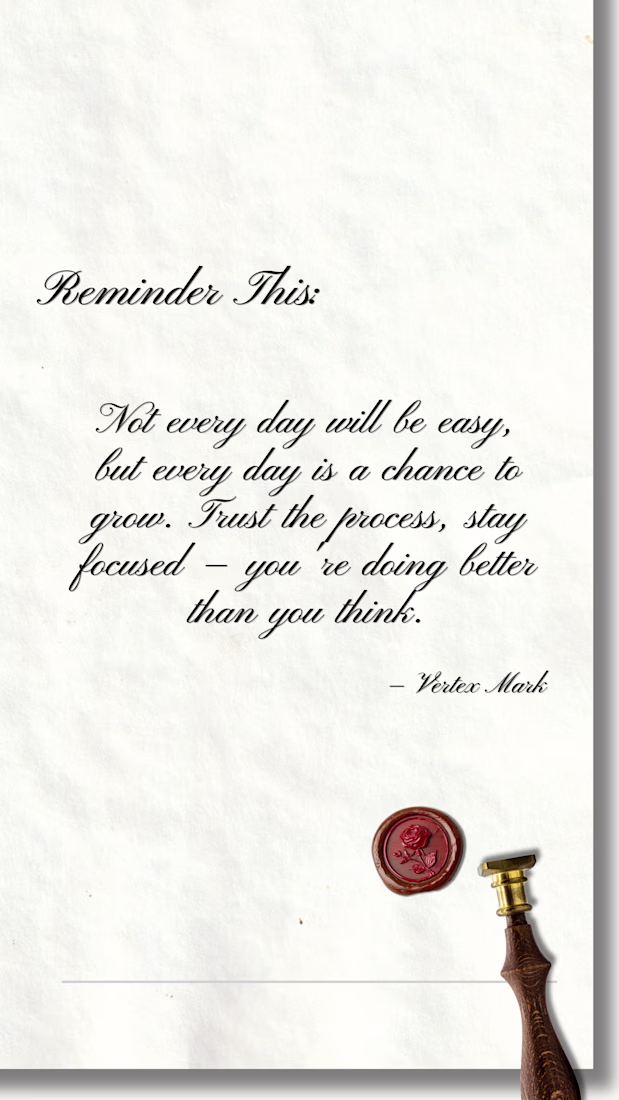 Reminder This:
Not every day will be easy,
but every day is a chance to
grow. Trust the process, stay
focused – you're doing better
than you think.
– Vertex Mark